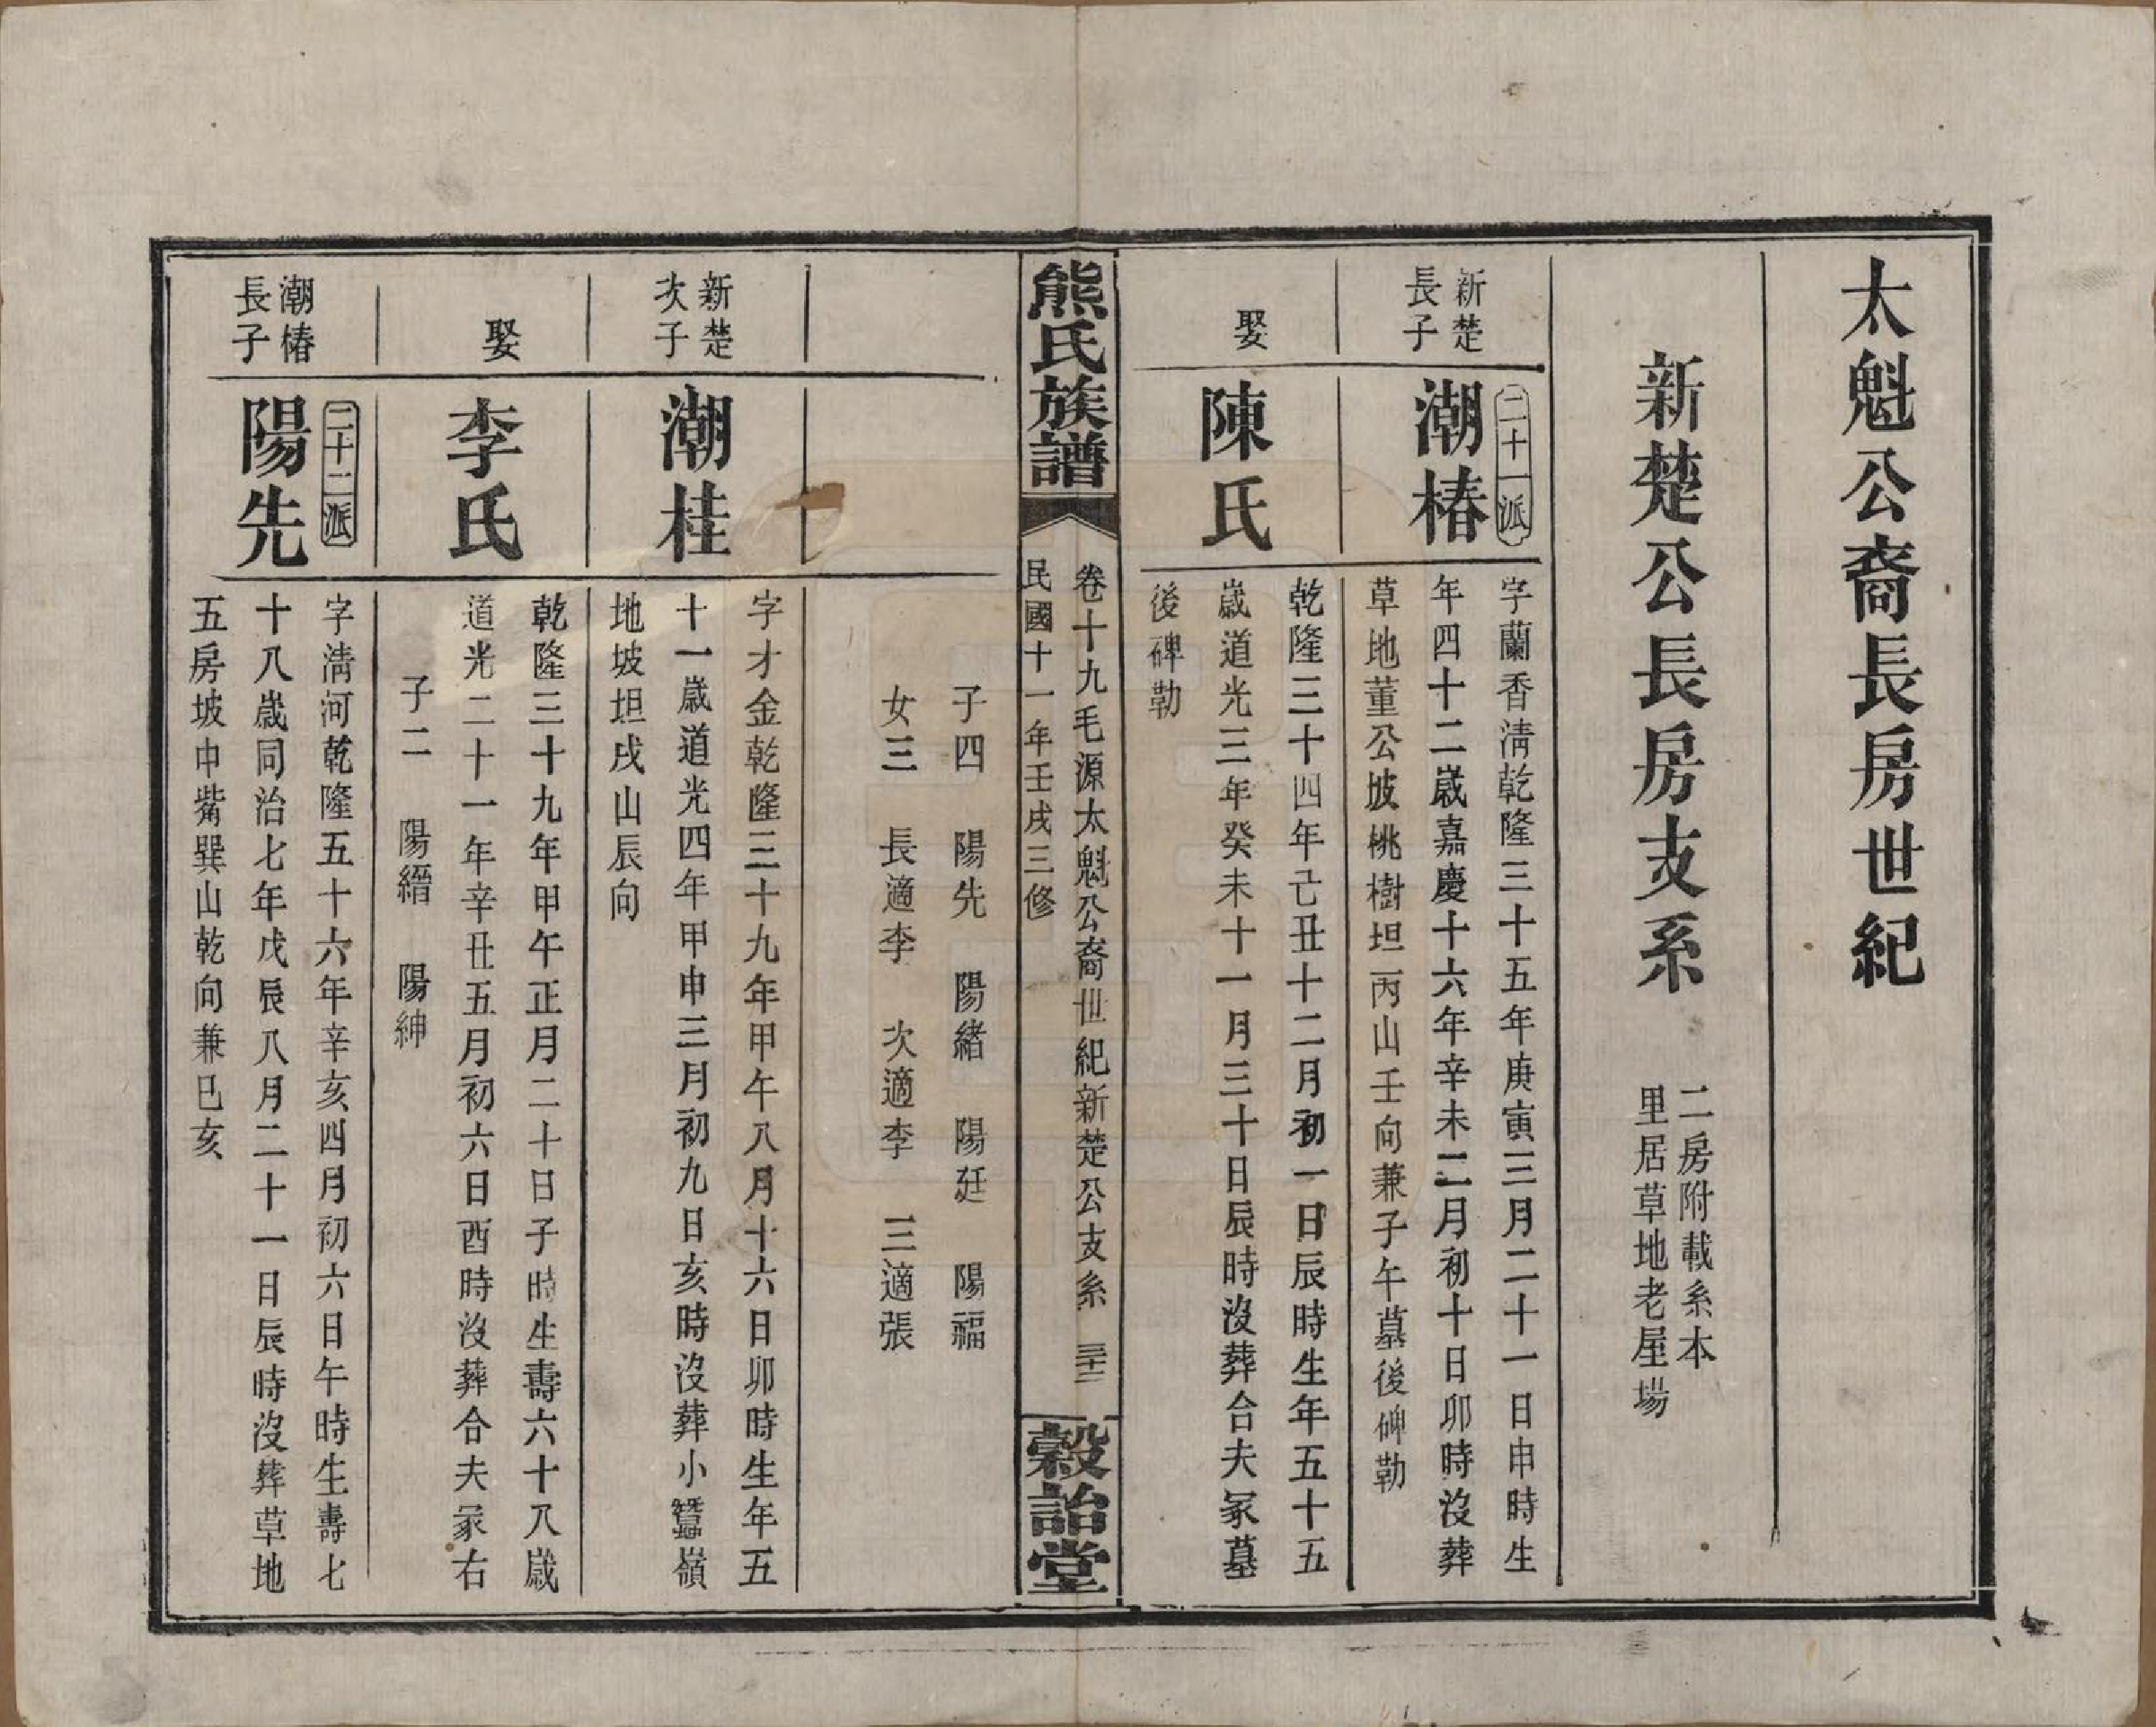 太魁公裔長房世紀
新楚公長房支系
二房附載系本
里居草地老屋場
新楚
長子
二十一派
潮椿
字蘭香清乾隆三十五年庚寅三月二十一日申時生
年四十二歲嘉慶十六年辛未二月初十日卯時沒葬
草地董公坡桃樹坦丙山壬向兼子午墓後碑勒
娶
陳氏
乾隆三十四年己丑十二月初一日辰時生年五十五
歲道光三年癸未十一月三十日辰時沒葬合夫冢墓
後碑勒
熊氏族譜
卷十九毛源太魁公裔世紀新楚公支系
民國十一年壬戌三修
穀詒堂
子四 陽先 陽緒 陽廷 陽福
女三 長適李 次適李 三適張
新楚
次子
潮桂
字才金乾隆三十九年甲午八月十六日卯時生年五
十一歲道光四年甲申三月初九日亥時沒葬小蠶嶺
地坡坦戌山辰向
娶
李氏
乾隆三十九年甲午正月二十日子時生壽六十八歲
道光二十一年辛丑五月初六日酉時沒葬合夫冢右
子二 陽縉 陽紳
潮椿
長子
二十二派
陽先
字清河乾隆五十六年辛亥四月初六日午時生壽七
十八歲同治七年戊辰八月二十一日辰時沒葬草地
五房坡中觜巽山乾向兼巳亥